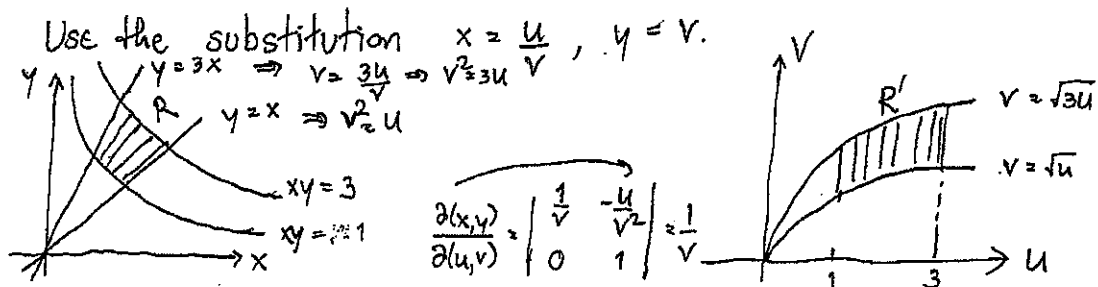 Use the substitution x = u/v , y = v.
y = 3x ⇒ v = 3u/v ⇒ v² = 3u
y
R
y = x ⇒ v² = u
xy = 3
xy = 1
x
∂(x,y)/∂(u,v) = | 1/v -u/v² | = 1/v
| 0 1 |
V
R'
v = √3u
v = √u
1 3 u